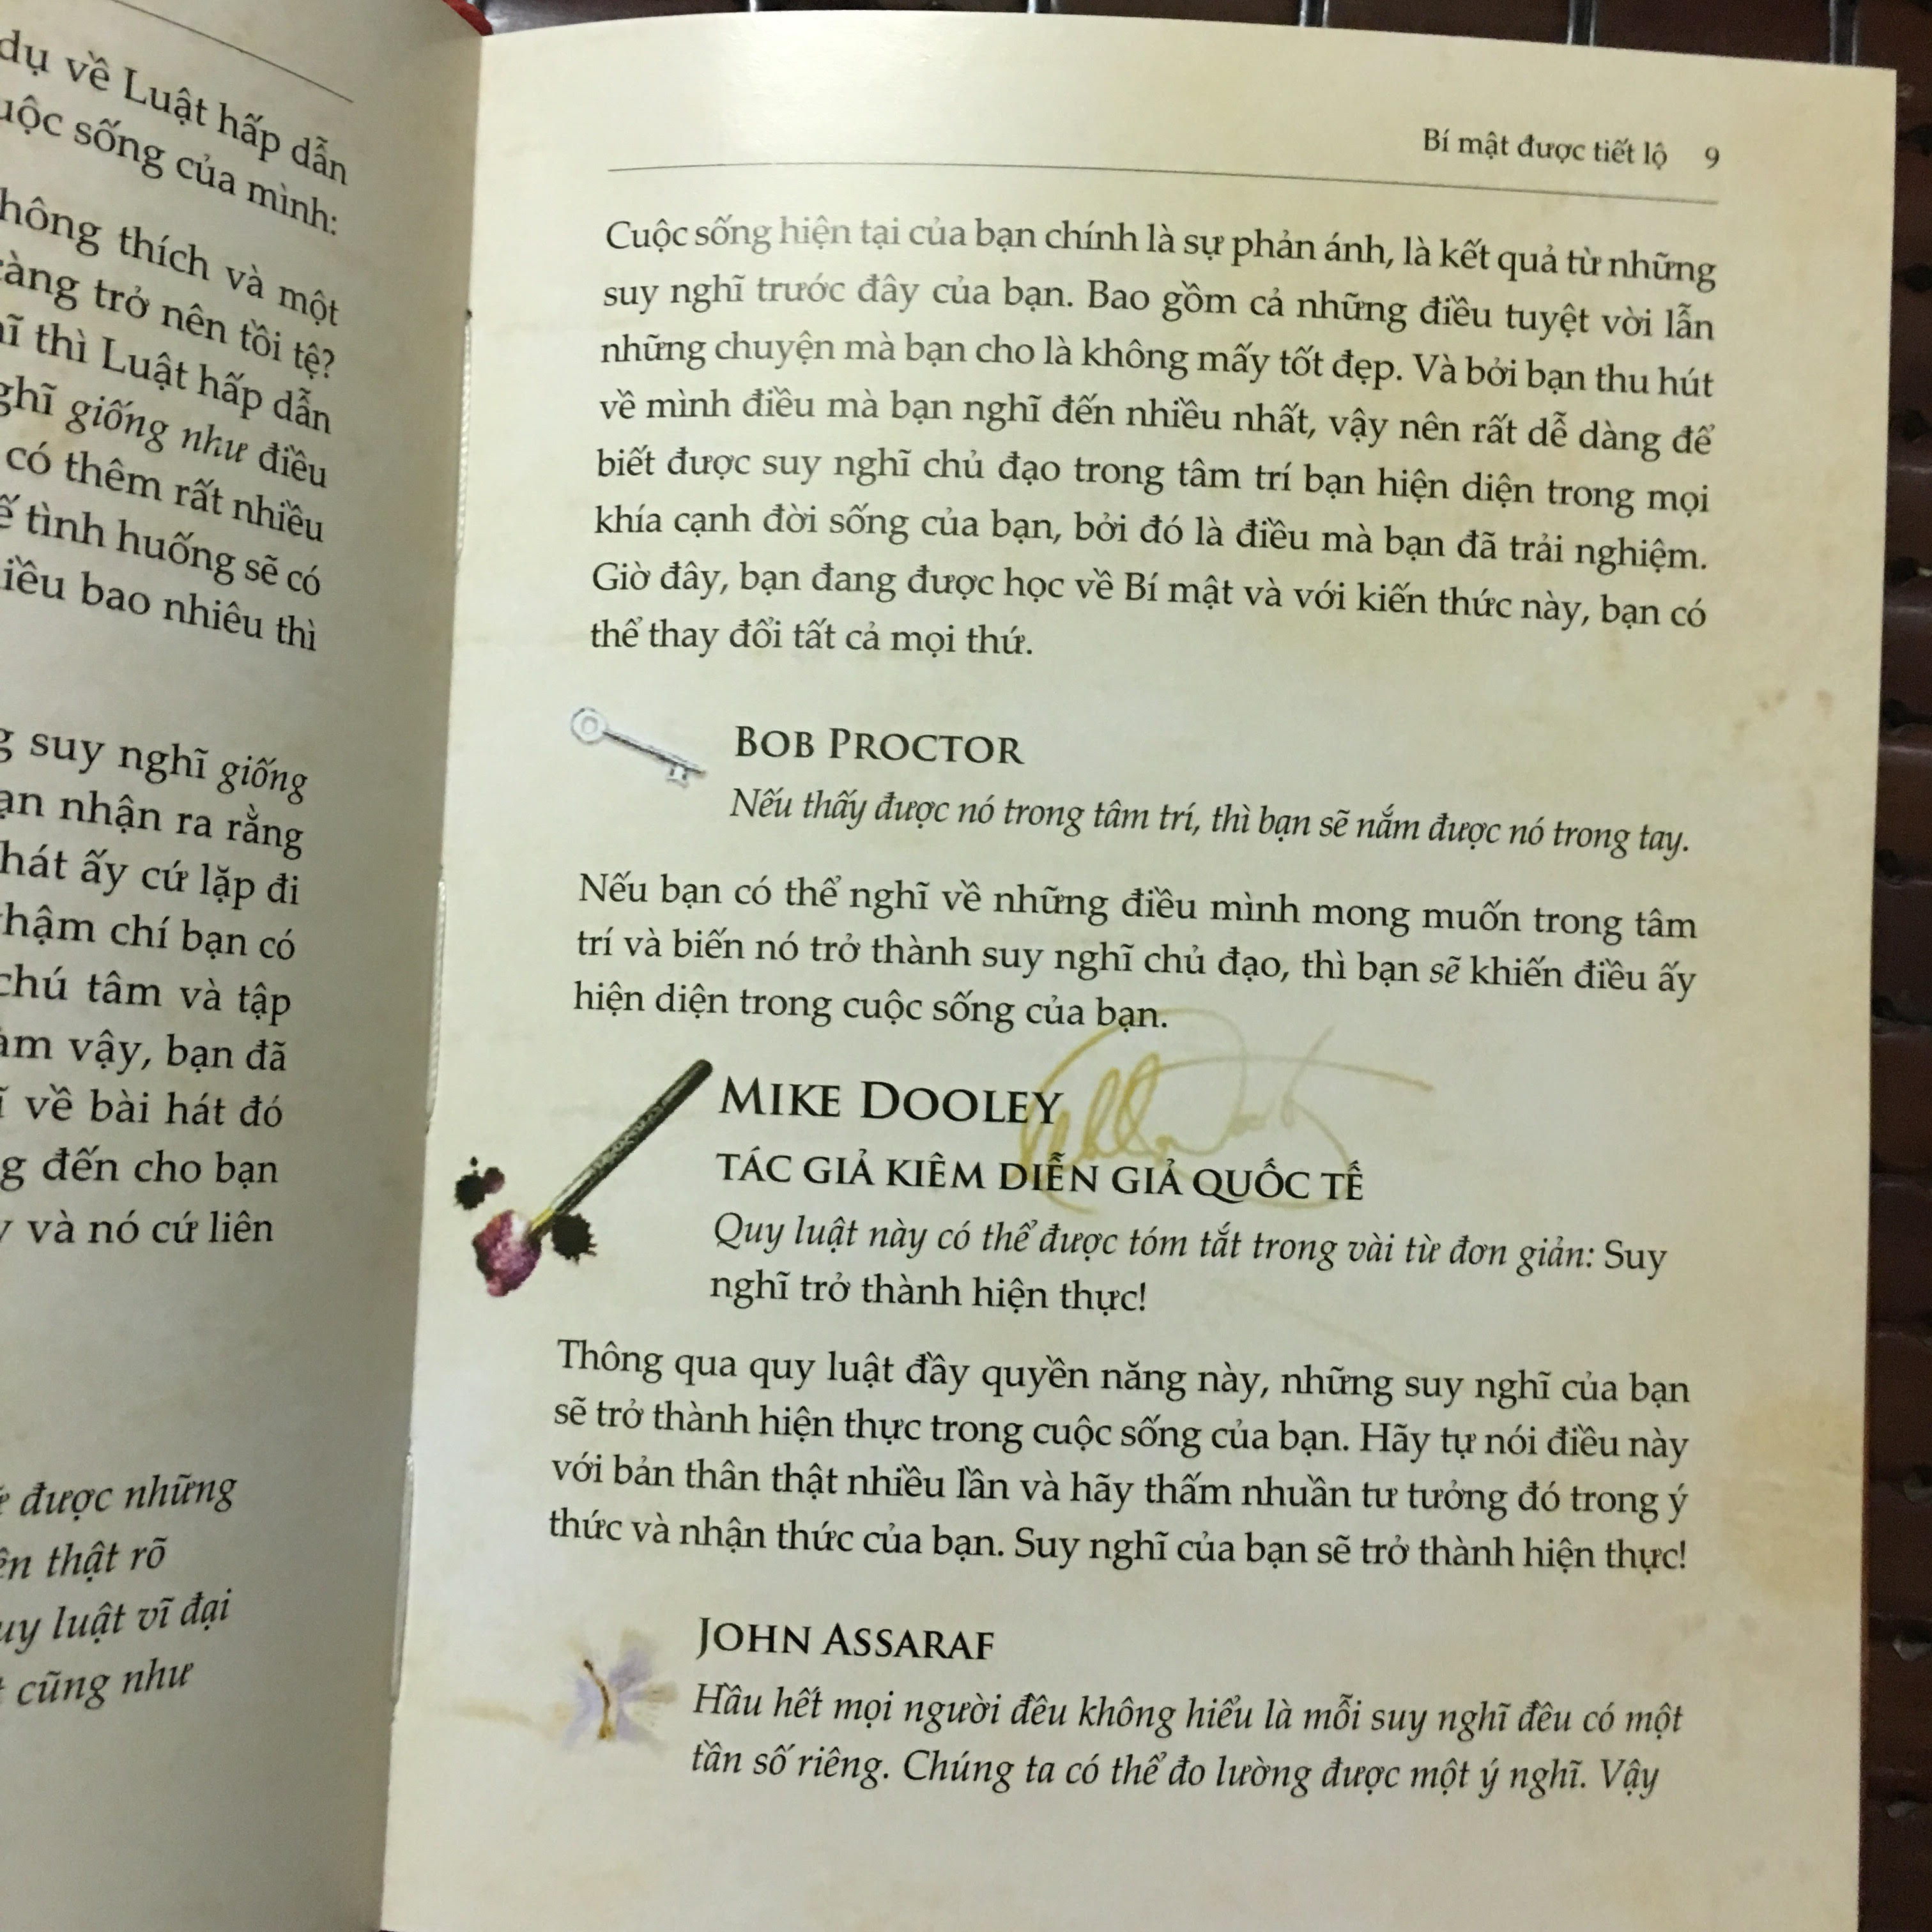 dụ về Luật hấp dẫn
sống của mình:
thích và một
trở nên tồi tệ?
thì Luật hấp dẫn
giống như điều
có thêm rất nhiều
tình huống sẽ có
bao nhiêu thì
suy nghĩ giống
nhận ra rằng
ấy cứ lặp đi
chí bạn có
chú tâm và tập
vậy, bạn đã
về bài hát đó
đến cho bạn
và nó cứ liên
được những
thật rõ
luật vĩ đại
cũng như
Bí mật được tiết lộ 9
Cuộc sống hiện tại của bạn chính là sự phản ánh, là kết quả từ những
suy nghĩ trước đây của bạn. Bao gồm cả những điều tuyệt vời lẫn
những chuyện mà bạn cho là không mấy tốt đẹp. Và bởi bạn thu hút
về mình điều mà bạn nghĩ đến nhiều nhất, vậy nên rất dễ dàng để
biết được suy nghĩ chủ đạo trong tâm trí bạn hiện diện trong mọi
khía cạnh đời sống của bạn, bởi đó là điều mà bạn đã trải nghiệm.
Giờ đây, bạn đang được học về Bí mật và với kiến thức này, bạn có
thể thay đổi tất cả mọi thứ.
BOB PROCTOR
Nếu thấy được nó trong tâm trí, thì bạn sẽ nắm được nó trong tay.
Nếu bạn có thể nghĩ về những điều mình mong muốn trong tâm
trí và biến nó trở thành suy nghĩ chủ đạo, thì bạn sẽ khiến điều ấy
hiện diện trong cuộc sống của bạn.
MIKE DOOLEY
TÁC GIẢ KIÊM DIỄN GIẢ QUỐC TẾ
Quy luật này có thể được tóm tắt trong vài từ đơn giản: Suy
nghĩ trở thành hiện thực!
Thông qua quy luật đầy quyền năng này, những suy nghĩ của bạn
sẽ trở thành hiện thực trong cuộc sống của bạn. Hãy tự nói điều này
với bản thân thật nhiều lần và hãy thấm nhuần tư tưởng đó trong ý
thức và nhận thức của bạn. Suy nghĩ của bạn sẽ trở thành hiện thực!
JOHN ASSARAF
Hầu hết mọi người đều không hiểu là mỗi suy nghĩ đều có một
tần số riêng. Chúng ta có thể đo lường được một ý nghĩ. Vậy